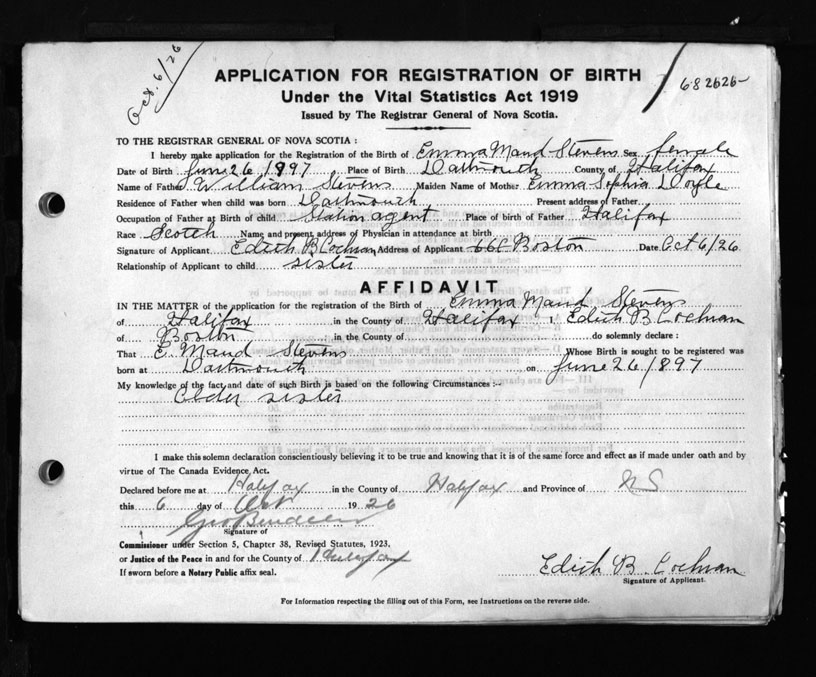 Oct. 6/26
682626
APPLICATION FOR REGISTRATION OF BIRTH
Under the Vital Statistics Act 1919
Issued by The Registrar General of Nova Scotia.
TO THE REGISTRAR GENERAL OF NOVA SCOTIA :
I hereby make application for the Registration of the Birth of Emma Maud Stevens Sex female
Date of Birth June 26, 1897 Place of Birth Dartmouth County of Halifax
Name of Father William Stevens Maiden Name of Mother Emma Sophia Doyle
Residence of Father when child was born Dartmouth Present address of Father
Occupation of Father at Birth of child Station agent Place of birth of Father Halifax
Race Scotch Name and present address of Physician in attendance at birth
Signature of Applicant Edith B Cochran Address of Applicant Boston Date Oct 6/26
Relationship of Applicant to child sister
AFFIDAVIT
IN THE MATTER of the application for the registration of the Birth of Emma Maud Stevens
of Halifax in the County of Halifax I, Edith B Cochran
of Boston in the County of do solemnly declare :
That E. Maud Stevens Whose Birth is sought to be registered was
born at Dartmouth on June 26 1897
My knowledge of the fact and date of such Birth is based on the following Circumstances :-
Older sister
I make this solemn declaration conscientiously believing it to be true and knowing that it is of the same force and effect as if made under oath and by
virtue of The Canada Evidence Act.
Declared before me at Halifax in the County of Halifax and Province of N S
this 6 day of Oct 1926
Signature of
Commissioner under Section 5, Chapter 38, Revised Statutes, 1923.
or Justice of the Peace in and for the County of Halifax
If sworn before a Notary Public affix seal.
Edith B. Cochran
Signature of Applicant.
For Information respecting the filling out of this Form, see Instructions on the reverse side.